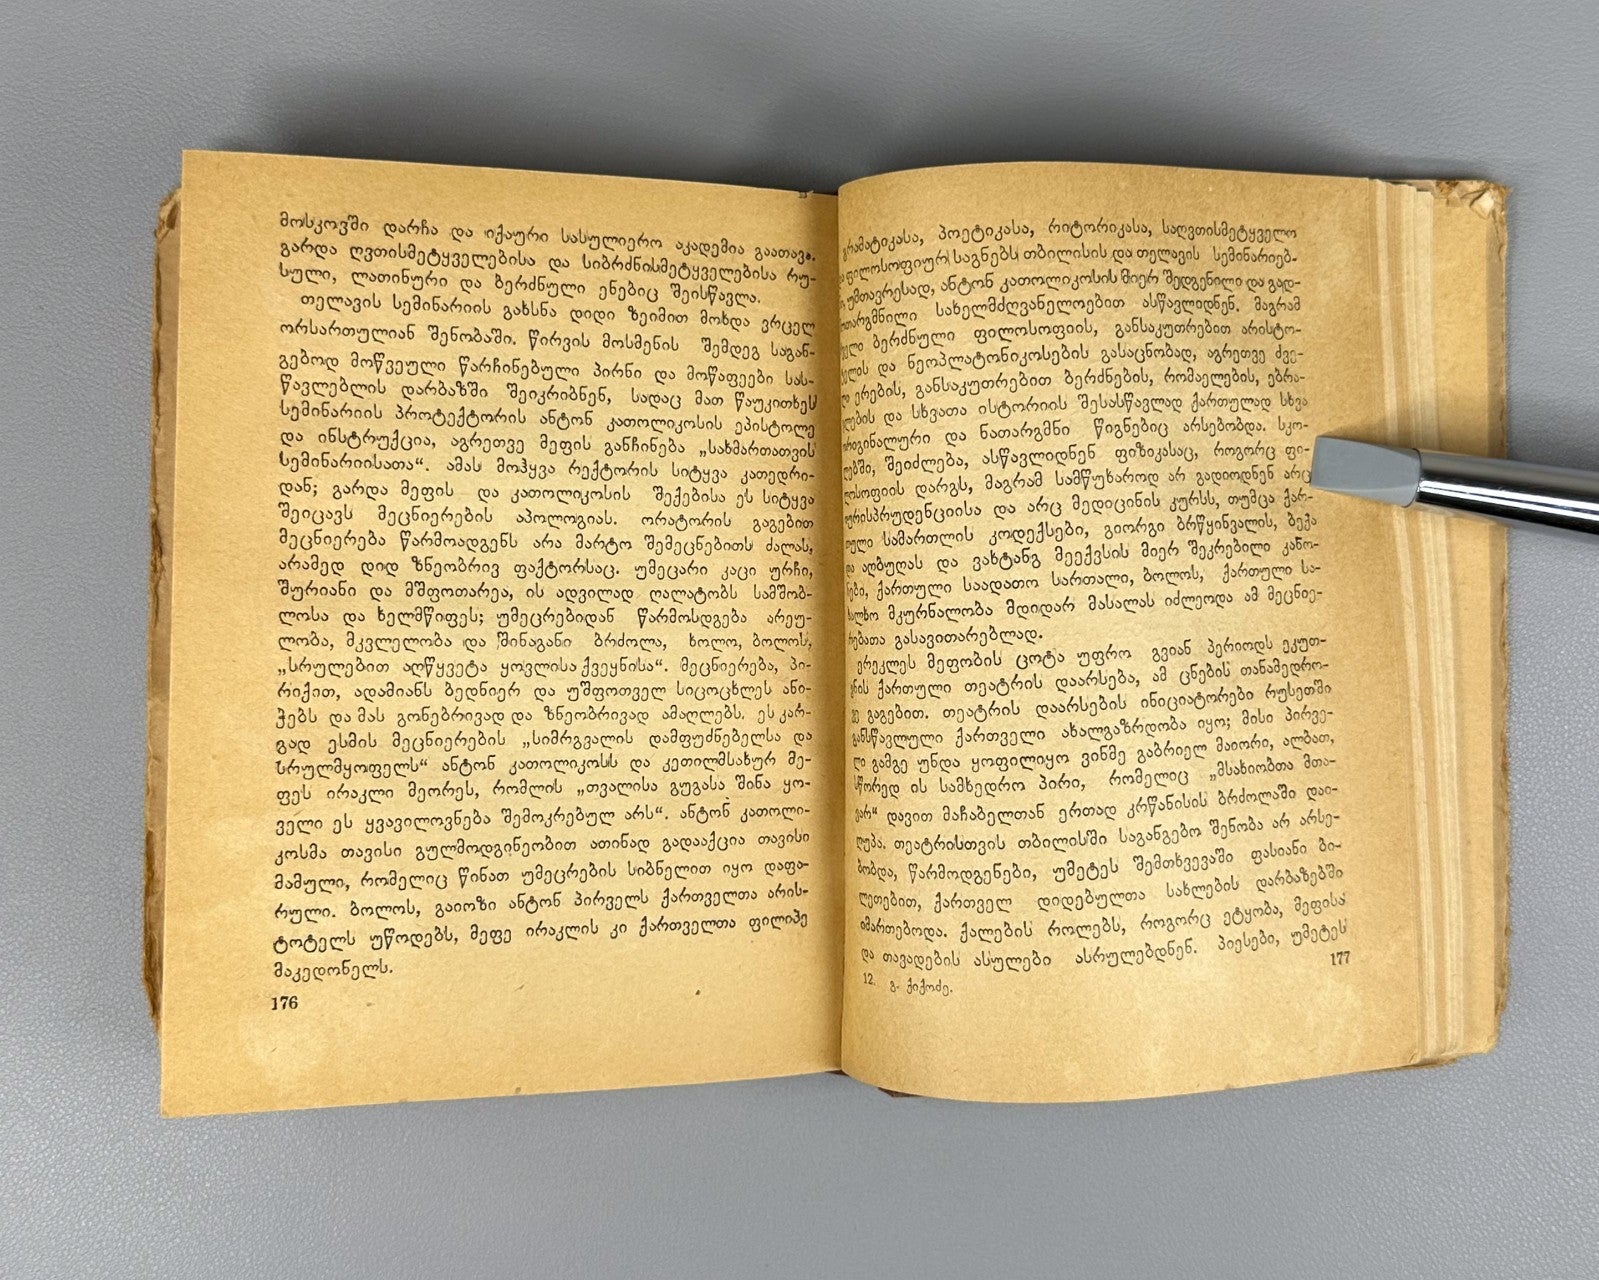 მოსკოვში დარჩა და იქაური სასულიერო აკადემია გაათავა.
გარდა ღვთისმეტყველებისა და სიბრძნისმეტყველებისა რუ-
სული, ლათინური და ბერძნული ენებიც შეისწავლა.
თელავის სემინარიის გახსნა დიდი ზეიმით მოხდა ვრცელ
ორსართულიან შენობაში. წირვის მოსმენის შემდეგ საგან-
გებოდ მოწვეული წარჩინებული პირნი და მოწაფეები სას-
წავლებლის დარბაზში შეიკრიბნენ, სადაც მათ წაუკითხეს
სემინარიის პროტექტორის ანტონ კათოლიკოსის ეპისტოლე
და ინსტრუქცია, აგრეთვე მეფის განჩინება „სახმართათვის
სემინარიისათა“. ამას მოჰყვა რექტორის სიტყვა კათედრი-
დან; გარდა მეფის და კათოლიკოსის შექებისა ეს სიტყვა
შეიცავს მეცნიერების აპოლოგიას. ორატორის გაგებით
მეცნიერება წარმოადგენს არა მარტო შემეცნებითს ძალას,
არამედ დიდ ზნეობრივ ფაქტორსაც. უმეცარი კაცი ურჩი,
შურიანი და მშფოთარეა, ის ადვილად ღალატობს სამშობ-
ლოსა და ხელმწიფეს; უმეცრებიდან წარმოსდგება არეუ-
ლობა, მკვლელობა და შინაგანი ბრძოლა, ხოლო, ბოლოს,
„სრულებით აღწყვეტა ყოვლისა ქვეყნისა“. მეცნიერება, პი-
რიქით, ადამიანს ბედნიერ და უშფოთველ სიცოცხლეს ანი-
ჭებს და მას გონებრივად და ზნეობრივად ამაღლებს. ეს კარ-
გად ესმის მეცნიერების „სიმრგვალის დამფუძნებელსა და
სრულმყოფელს“ ანტონ კათოლიკოსს და კეთილმსახურ მე-
ფეს ირაკლი მეორეს, რომლის „თვალისა გუგასა შინა ყო-
ველი ეს ყვავილოვნება შემოკრებულ არს“. ანტონ კათოლი-
კოსმა თავისი გულმოდგინეობით ათინად გადააქცია თავისი
მამული, რომელიც წინათ უმეცრების სიბნელით იყო დაფა-
რული. ბოლოს, გაიოზი ანტონ პირველს ქართველთა არის-
ტოტელს უწოდებს, მეფე ირაკლის კი ქართველთა ფილიპე
მაკედონელს.
176
გრამატიკასა, პოეტიკასა, რიტორიკასა, საღვთისმეტყველო
ფილოსოფიურ საგნებს თბილისის და თელავის სემინარიებ-
უმთავრესად, ანტონ კათოლიკოსის მიერ შედგენილი და გად-
სახელმძღვანელოებით ასწავლიდნენ. მაგრამ
ბერძნული ფილოსოფიის, განსაკუთრებით არისტო-
და ნეოპლატონიკოსების გასაცნობად, აგრეთვე ძვე-
ერების, განსაკუთრებით ბერძნების, რომაელების, ებრა-
და სხვათა ისტორიის შესასწავლად ქართულად სხვა
ორიგინალური და ნათარგმნი წიგნებიც არსებობდა. სკო-
შეიძლება, ასწავლიდნენ ფიზიკასაც, როგორც ფი-
ლოსოფიის დარგს, მაგრამ სამწუხაროდ არ გადიოდნენ არც
იურისპრუდენციისა და არც მედიცინის კურსს, თუმცა ქარ-
თული სამართლის კოდექსები, გიორგი ბრწყინვალის, ბექა
და აღბუღას და ვახტანგ მეექვსის მიერ შეკრებილი კანო-
ნები, ქართული საადათო სართალი, ბოლოს, ქართული სა-
ხალხო მკურნალობა მდიდარ მასალას იძლეოდა ამ მეცნიე-
რებათა გასავითარებლად.
ერეკლეს მეფობის ცოტა უფრო გვიან პერიოდს ეკუთ-
ვნის ქართული თეატრის დაარსება, ამ ცნების თანამედრო-
ვე გაგებით. თეატრის დაარსების ინიციატორები რუსეთში
განსწავლული ქართველი ახალგაზრდობა იყო; მისი პირვე-
ლი გამგე უნდა ყოფილიყო ვინმე გაბრიელ მაიორი, ალბათ,
სწორედ ის სამხედრო პირი, რომელიც „მსახიობთა მთა-
ვარ“ დავით მაჩაბელთან ერთად კრწანისის ბრძოლაში დაი-
ღუპა. თეატრისთვის თბილისში საგანგებო შენობა არ არსე-
ბობდა, წარმოდგენები, უმეტეს შემთხვევაში ფასიანი ბი-
ლეთებით, ქართველ დიდებულთა სახლების დარბაზებში
იმართებოდა. ქალების როლებს, როგორც ეტყობა, მეფისა
და თავადების ასულები ასრულებდნენ. პიესები, უმეტეს
177
12. გ. ქიქოძე.